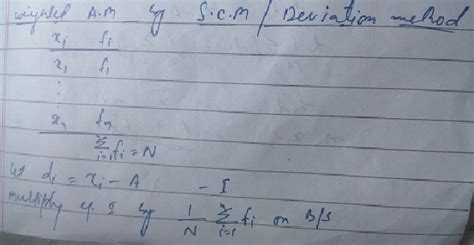 weighted A.M by S.C.M / Deviation method
xi fi
x1 f1
⋮ ⋮
xn fn
∑ i=1 n fi = N
let di = xi - A - I
multiply eq I by 1/N ∑ i=1 n fi on B/S